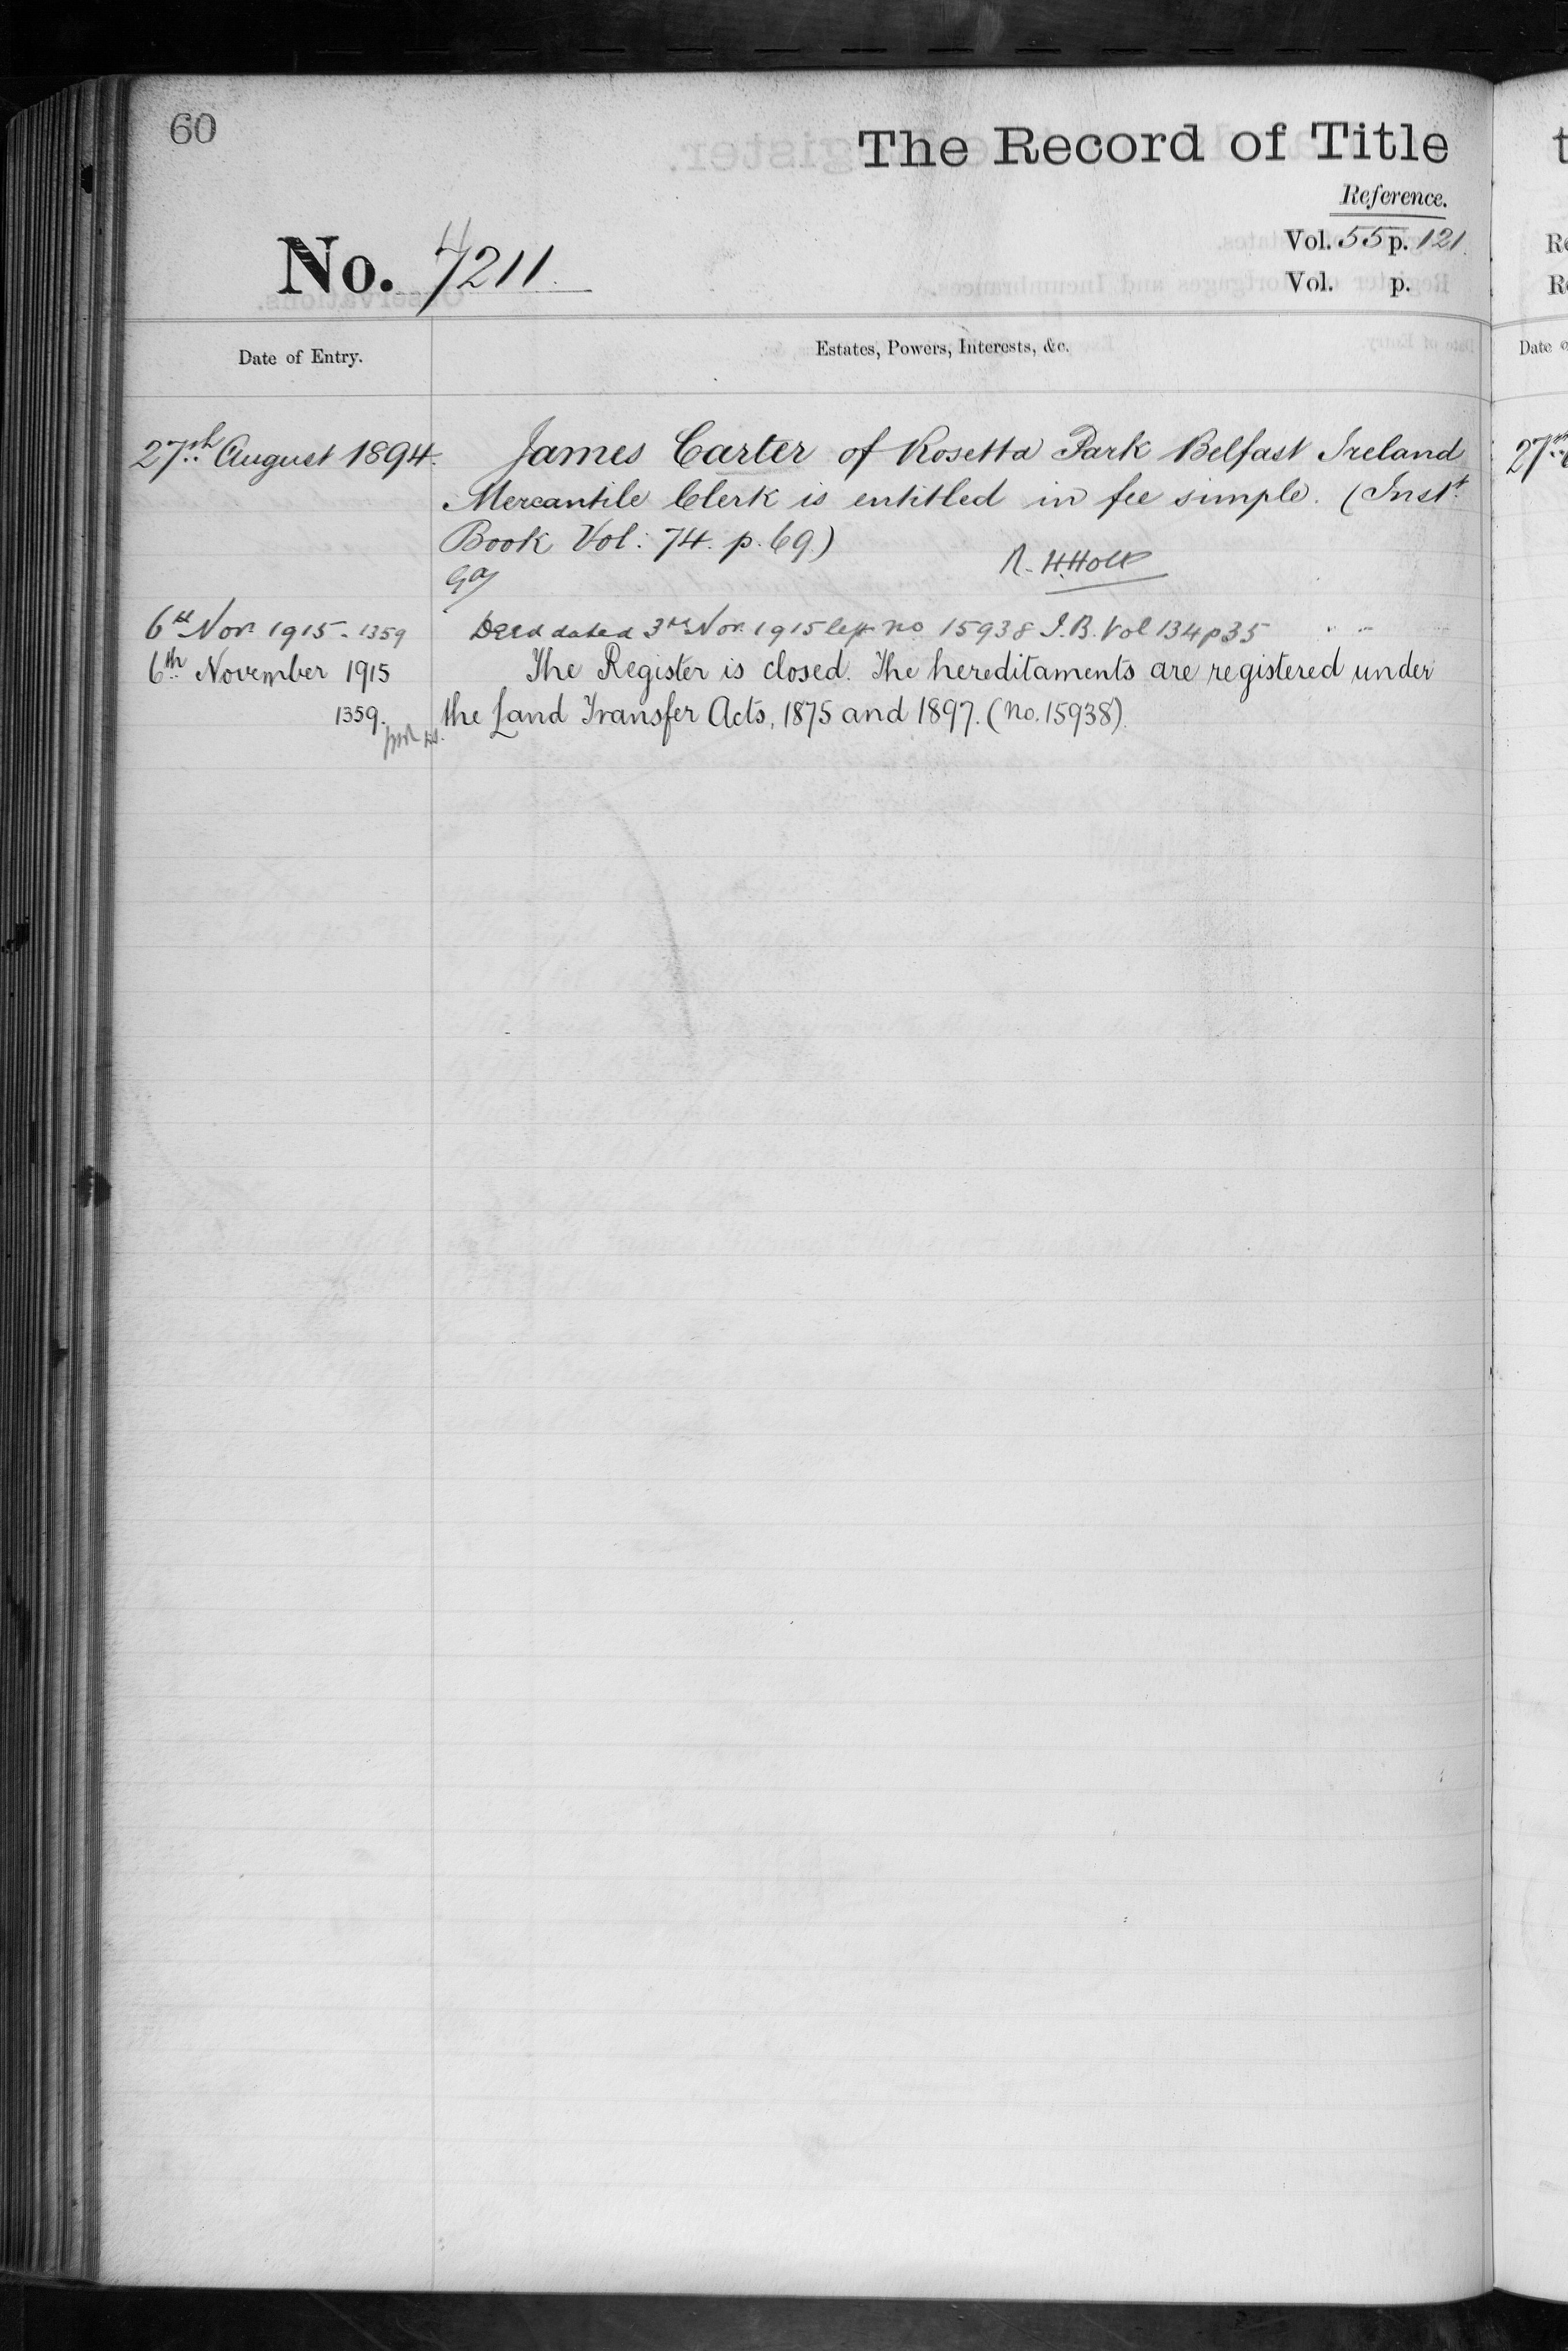 60
The Record of Title
Reference.
Vol. 55 p. 121.
No. 4211.
Vol. p.
Date of Entry.
Estates, Powers, Interests, &c.
27th August 1894. James Carter of Rosetta Park Belfast Ireland
Mercantile Clerk is entitled in fee simple. (Inst.
Book Vol: 74. p. 69.)
R. H. Holt
6th Nov. 1915 - 1359 Deed dated 3rd Nov. 1915 left no 15938 I.B. Vol 134 p 35
6th November 1915 The Register is closed. The hereditaments are registered under
1359. the Land Transfer Acts, 1875 and 1897. (No. 15938).
t
Re
Re
Date o
27th